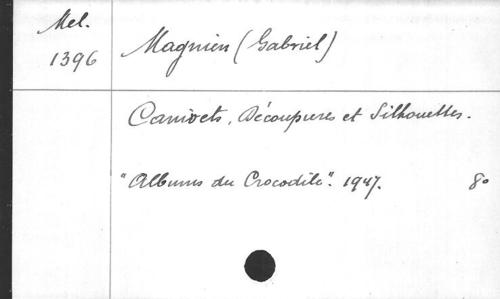 Mel.
1396
Magnien (Gabriel)
Canivets, Découpures et Silhouettes.
"Albums du Crocodile". 1947.
8o